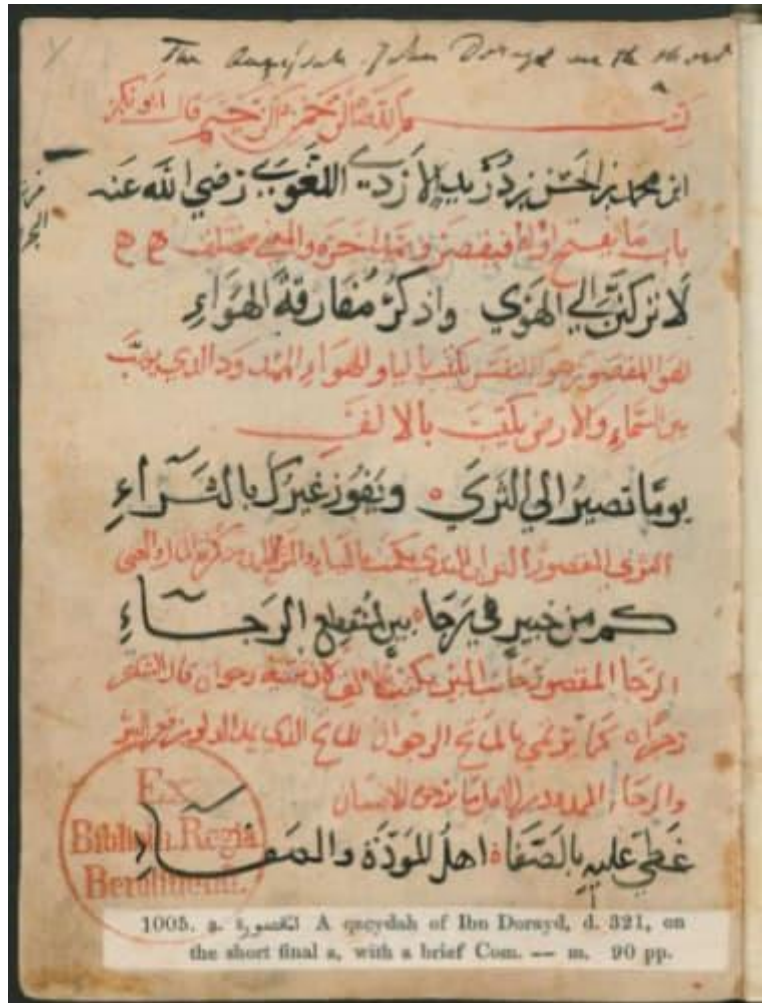 The Qaçydah of Ibn Dorayd on the short
a
بسم الله الرحمن الرحيم قال ابو بكر
ابن محمد بن الحسن بن دُرَيد الازدي اللغوي رضي الله عنه
باب ما يفتح اوله فيقصر ويمد اخره والمعنى مختلف ه ه
لا تركننَّ الي الهَوَي واذكُرْ مُفارقةَ الهَوَاءِ
الهوي المقصور هو النفس يكتب باليا والهواء الممدود الذي
بين السَّماءِ والارض يكتب بالالف
يومًا تصيرُ الي الثَرَي ويَفُوز غيرُك بالثَراءِ
الثري المقصور التراب الندي يكتب بالياء
كم من حَفيرٍ في رَجَا بينٍ لمُنقطِع الرَجَاءِ
الرجا المقصور جانب البئر يكتب بالالف لان تثنيته رجوان قال الشاعر
كما يرمي
والرجاء الممدود الامل للانسان
غَطَّي عليهِ بالصَفَاة اهلُ المَوَدَّة والصَفَاءِ
Ex
Biblioth. Regia
Berolinensi.
1005. a. المقصورة A qaçydah of Ibn Dorayd, d. 321, on
the short final a, with a brief Com. — m. 90 pp.